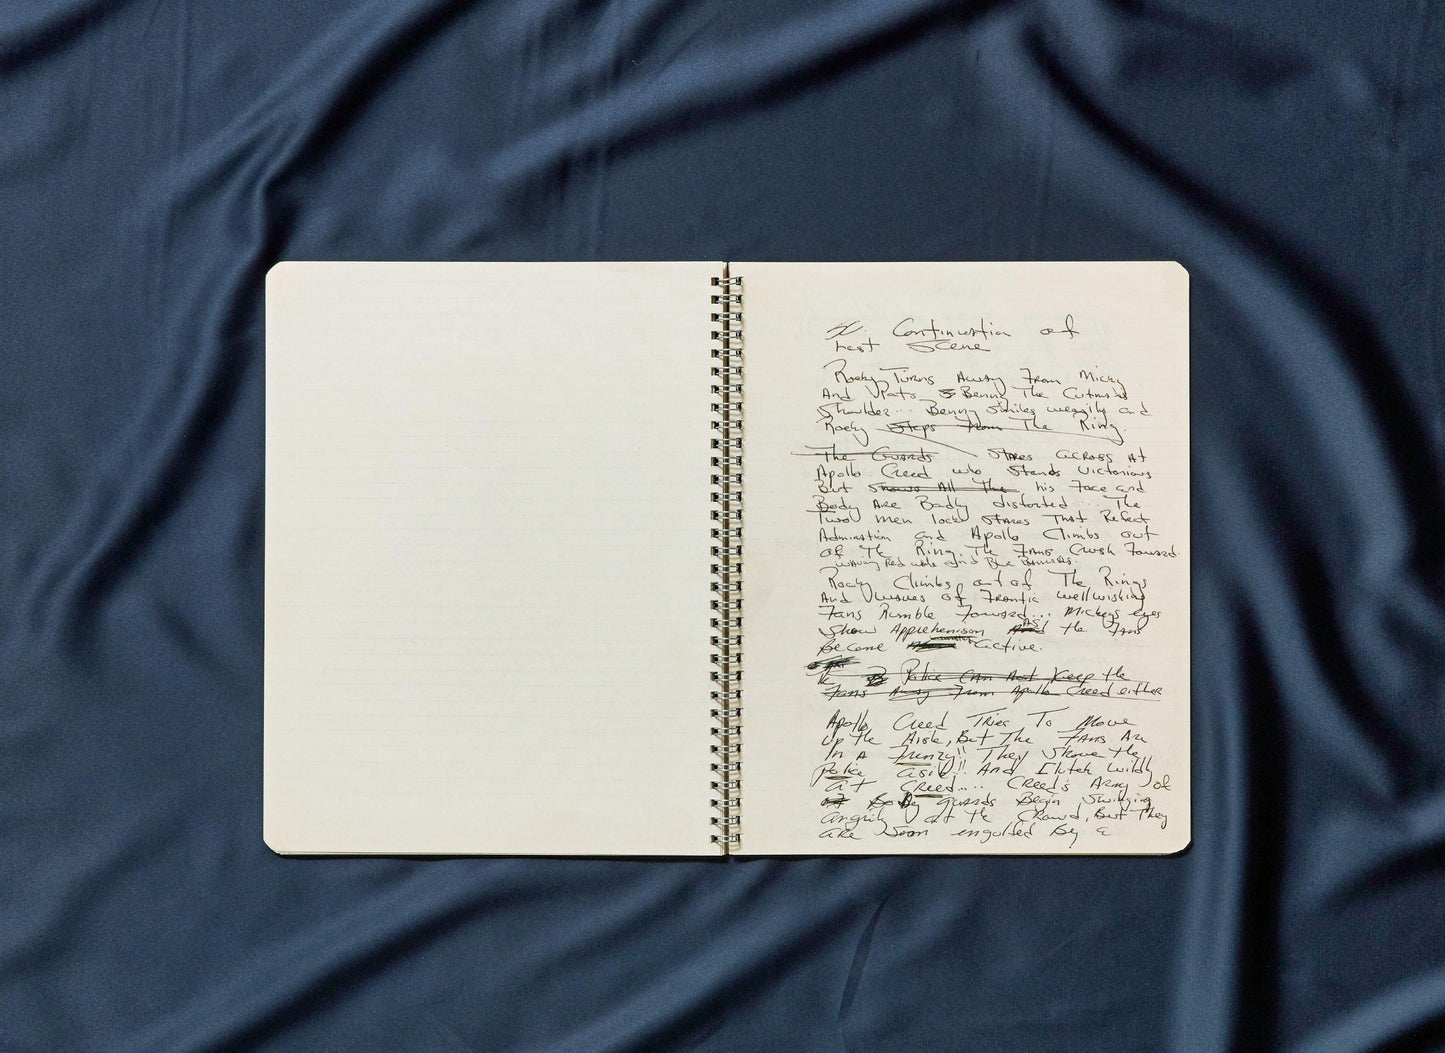 Continuation of
Last Scene
Rocky Turns Away From Micky
And Pats Benny The Cutmans
Shoulder... Benny Smiles wearily and
Rocky Steps From The Ring.
The Guards Stares across At
Apollo Creed who Stands Victorious
But Shows All The his Face and
Body Are Badly distorted... The
Two men lock Stares That Reflect
Admiration and Apollo Climbs out
of The Ring. The Fans Crush Forward
waving Red white and Blue Banners.
Rocky Climbs out of The Rings
And waves of Frantic wellwishing
Fans Rumble Forward... Mickeys eyes
Show Apprehension As the Fans
Become active.
Police Can Not Keep the
Fans Away From Apollo Creed either
Apollo Creed Tries To Move
Up the Aisle, But The Fans Are
In A Frenzy!! They Shove the
Police aside!! And Clutch wildly
at Creed.... Creed's Army of
of Body guards Begin Swinging
angrily at the Crowd, But They
are Soon engulfed By a